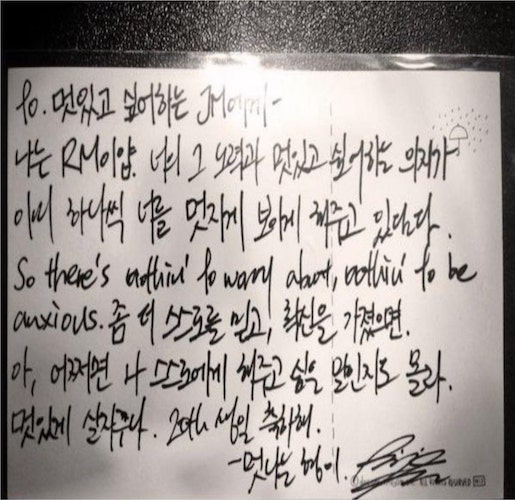 To. 멋있고 싶어하는 JM에게-
나는 RM이얌. 너의 그 노력과 멋있고 싶어하는 의지가
이미 하나씩 너를 멋지게 보이게 해주고 있단다.
So there's nothin' to worry about, nothin' to be
anxious. 좀 더 스스로를 믿고, 확신을 가졌으면.
아, 어쩌면 나 스스로에게 해주고 싶은 말인지도 몰라.
멋있게 살자꾸나. 생일 축하해.
-멋나는 형이.
ALL RIGHTS RESERVED